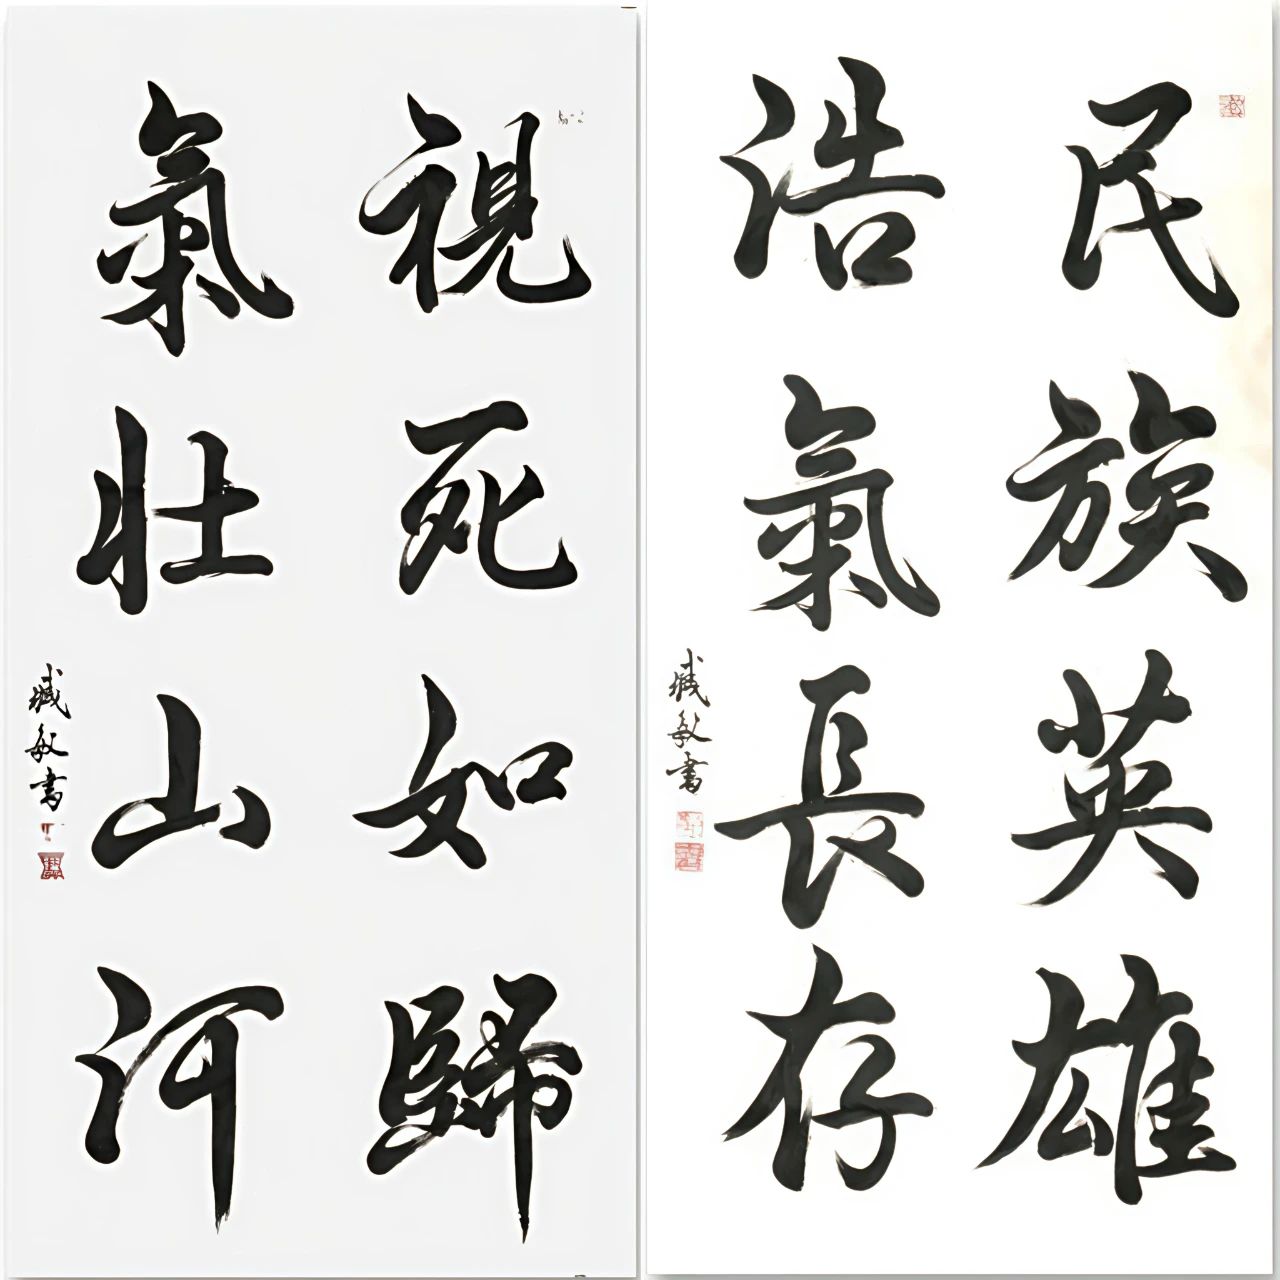 民族英雄
浩氣長存
臧敏書
視死如歸
氣壯山河
臧敏書